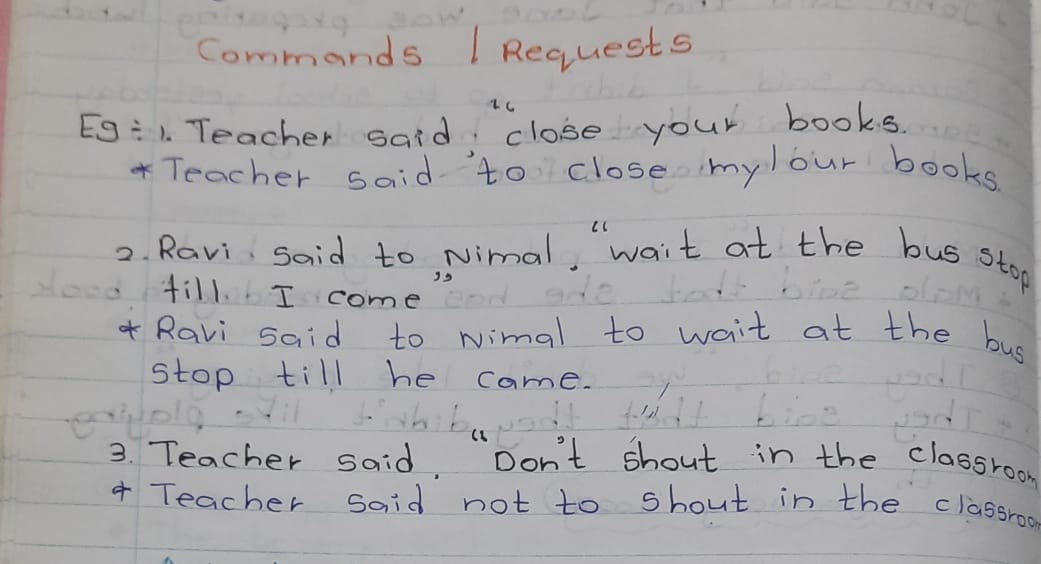 Commands / Requests
Eg :- 1. Teacher said, "close your books.
* Teacher said to close my/our books.
2. Ravi said to Nimal, "wait at the bus stop
till I come"
* Ravi said to Nimal to wait at the bus
stop till he came.
3. Teacher said, "Don't shout in the classroom
* Teacher said not to shout in the classroom